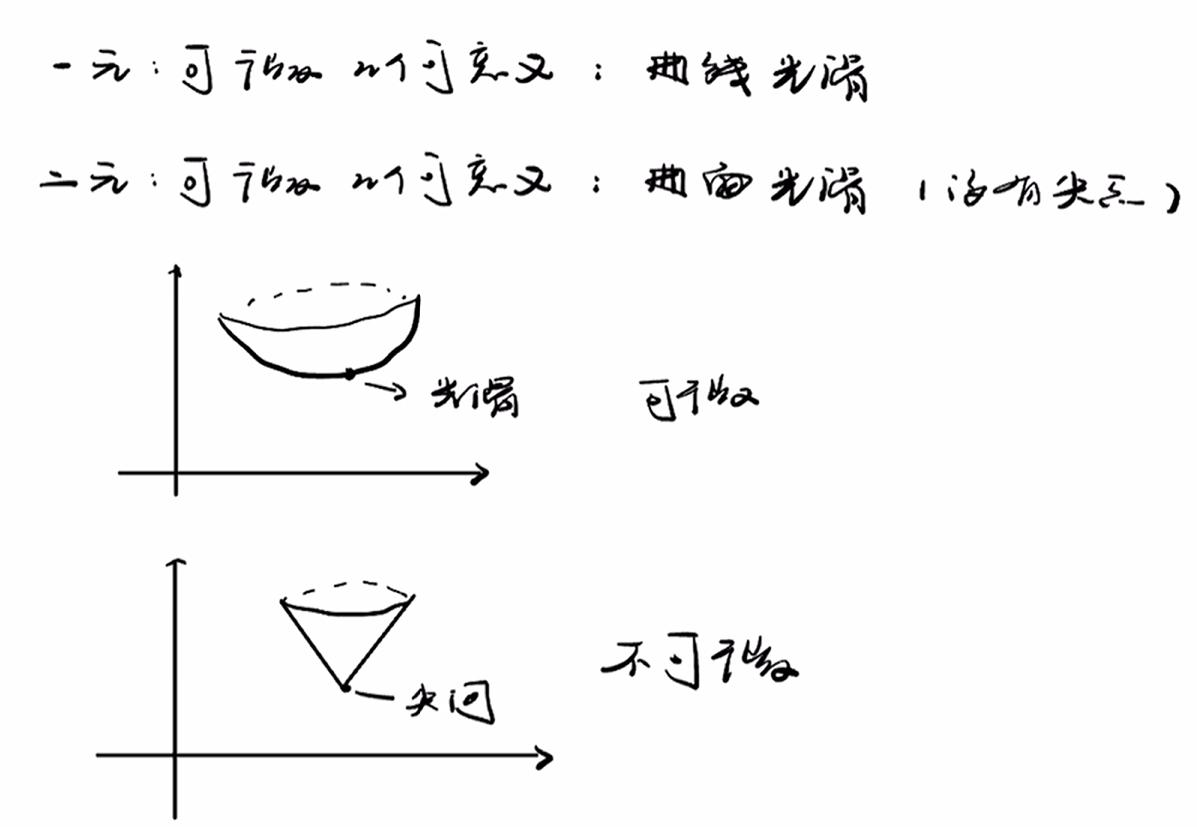 一元：可微 几何意义：曲线光滑
二元：可微 几何意义：曲面光滑（没有尖点）
光滑 可微
不可微
尖